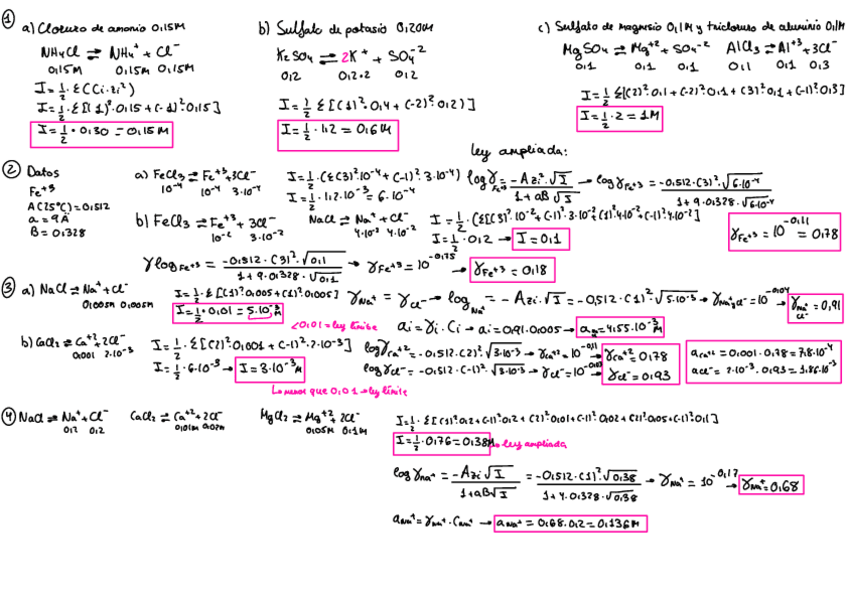 ① a) Cloruro de amonio 0,15M
NH4Cl ⇌ NH4+ + Cl-
0,15M 0,15M 0,15M
I = 1/2 · Σ(Ci·zi²)
I = 1/2 · Σ[(1)²·0,15 + (-1)²·0,15]
I = 1/2 · 0,30 = 0,15M
b) Sulfato de potasio 0,20M
K2SO4 ⇌ 2K+ + SO4-2
0,2 0,2·2 0,2
I = 1/2 Σ[(1)²·0,4 + (-2)²·0,2)]
I = 1/2 · 1,2 = 0,6M
c) Sulfato de magnesio 0,1M y tricloruro de aluminio 0,1M
MgSO4 ⇌ Mg+2 + SO4-2 AlCl3 ⇌ Al+3 + 3Cl-
0,1 0,1 0,1 0,1 0,1 0,3
I = 1/2 Σ[(2)²·0,1 + (-2)²·0,1 + (3)²·0,1 + (-1)²·0,3]
I = 1/2 · 2 = 1M
② Datos
Fe+3
A(25°C) = 0,512
a = 9Å
B = 0,328
a) FeCl3 ⇌ Fe+3 + 3Cl-
10-4 10-4 3·10-4
I = 1/2 · (Σ(3)²·10-4 + (-1)²·3·10-4)
I = 1/2 · 1,2·10-3 = 6·10-4
ley ampliada:
logγFe+3 = -Azi²·√I / 1+aB√I → logγFe+3 = -0,512·(3)²·√6·10-4 / 1+9·0,328·√6·10-4
γFe+3 = 10-0,11 = 0,78
b) FeCl3 ⇌ Fe+3 + 3Cl-
10-2 3·10-2
NaCl ⇌ Na+ + Cl-
4·10-2 4·10-2
I = 1/2 · (Σ[(3)²·10-2 + (-1)²·3·10-2 + (1)²·4·10-2 + (-1)²·4·10-2]
I = 1/2 · 0,2 → I = 0,1
γlogFe+3 = -0,512·(3)²·√0,1 / 1+9·0,328·√0,1 → γFe+3 = 10-0,75 → γFe+3 = 0,18
③ a) NaCl ⇌ Na+ + Cl-
0,005M 0,005M
I = 1/2 · Σ[(1)²·0,005 + (1)²·0,005]
I = 1/2 · 0,01 = 5·10-3M
<0,01 = ley límite
γNa+ = γCl- → logNa+ = -Azi·√I = -0,512·(1)²·√5·10-3 → γNa+yCl- = 10-0,04 → γNa+ Cl- = 0,91
ai = γi·Ci → ai = 0,91·0,005 → ai = 4,55·10-3M
b) CaCl2 ⇌ Ca+2 + 2Cl-
0,001 2·10-3
I = 1/2 · Σ[(2)²·0,001 + (-1)²·2·10-3]
I = 1/2 · 6·10-3 → I = 3·10-3M
↳ menor que 0,01 → ley límite
logγCa+2 = -0,512·(2)²·√3·10-3 → γCa+2 = 10-0,11 → γCa+2 = 0,78
logγCl- = -0,512·(-1)²·√3·10-3 → γCl- = → γCl- = 0,93
aCa+2 = 0,001·0,78 = 7,8·10-4
aCl- = 2·10-3·0,93 = 1,86·10-3
④ NaCl ⇌ Na+ + Cl-
0,2 0,2
CaCl2 ⇌ Ca+2 + 2Cl-
0,01M 0,02M
MgCl2 ⇌ Mg+2 + 2Cl-
0,05M 0,1M
I = 1/2 · Σ[(1)²·0,2 + (-1)²·0,2 + (2)²·0,01 + (-1)²·0,02 + (2)²·0,05 + (-1)²·0,1]
I = 1/2 · 0,76 = 0,38M → ley ampliada
logγNa+ = -Azi√I / 1+aB√I = -0,512·(1)²·√0,38 / 1+4·0,328·√0,38 → γNa+ = 10-0,17 → γNa+ = 0,68
aNa+ = γNa+·CNa+ → aNa+ = 0,68·0,2 = 0,136M